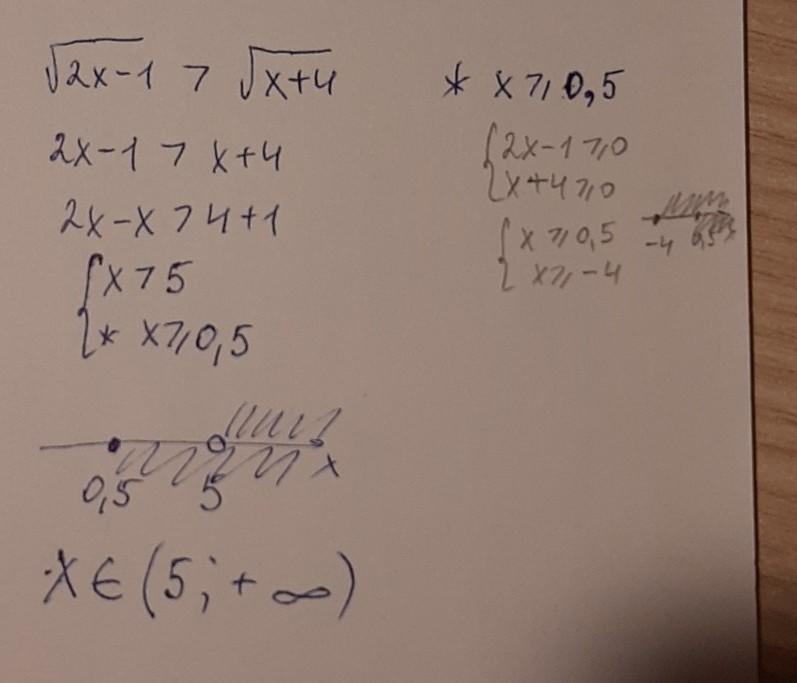 √2x-1 > √x+4
2x-1 > x+4
2x-x > 4+1
{x > 5
{* x ⩾ 0,5
0,5 5 x
x ∈ (5; +∞)
* x ⩾ 0,5
{2x-1 ⩾ 0
{x+4 ⩾ 0
{x ⩾ 0,5
{x ⩾ -4
-4 0,5